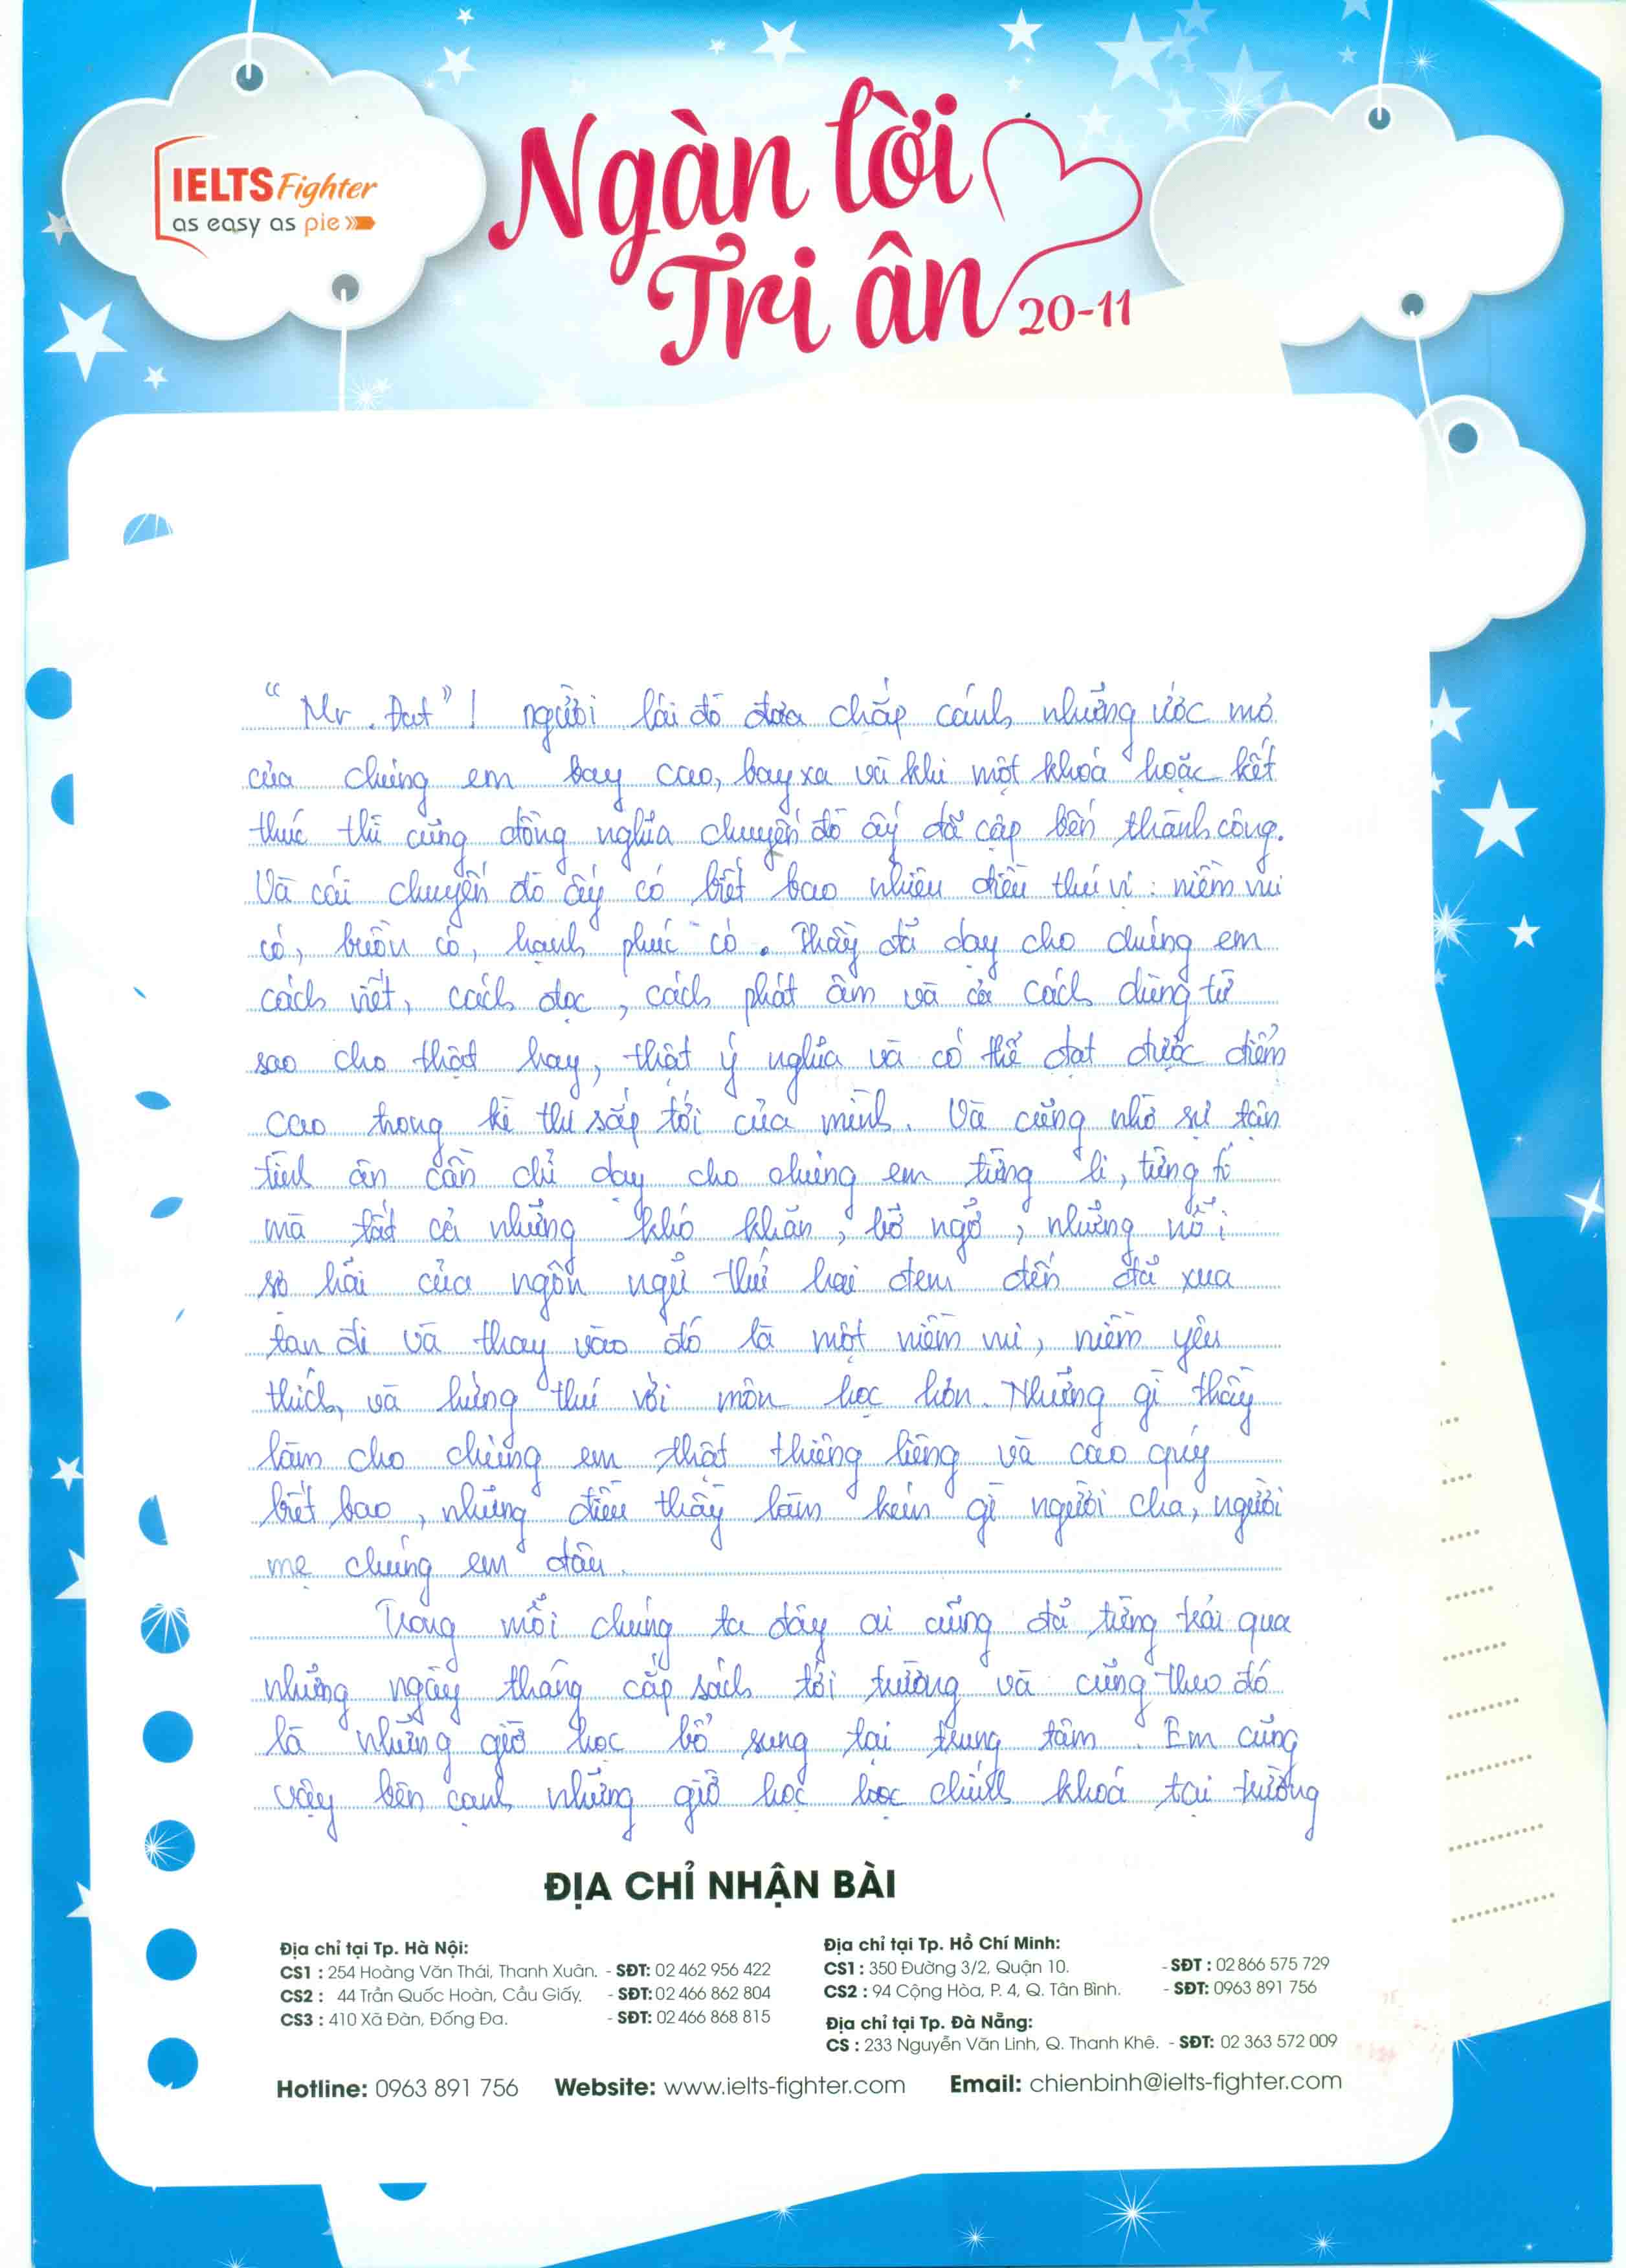 IELTS Fighter
as easy as pie
Ngàn lời
Tri ân 20-11
"Mr. Đạt"! người lái đò đưa chắp cánh những ước mơ
của chúng em bay cao, bay xa và khi một khoá hoặc kết
thúc thì cũng đồng nghĩa chuyến đò ấy đã cập bến thành công.
Và cái chuyến đò ấy có biết bao nhiêu điều thú vị : niềm vui
có, buồn có, hạnh phúc có. Thầy đã dạy cho chúng em
cách viết, cách đọc, cách phát âm và cả cách dùng từ
sao cho thật hay, thật ý nghĩa và có thể đạt được điểm
cao trong kì thi sắp tới của mình. Và cũng nhờ sự tận
tình ân cần chỉ dạy cho chúng em từng li, từng tí
mà tất cả những khó khăn, bỡ ngỡ, những nỗi
sợ hãi của ngôn ngữ thứ hai đem đến đã xua
tan đi và thay vào đó là một niềm vui, niềm yêu
thích, và hứng thú với môn học hơn. Những gì thầy
làm cho chúng em thật thiêng liêng và cao quý
biết bao, những điều thầy làm kém gì người cha, người
mẹ chúng em đâu.
Trong mỗi chúng ta đây ai cũng đã từng trải qua
những ngày tháng cắp sách tới trường và cũng theo đó
là những giờ học bổ sung tại trung tâm. Em cũng
vậy bên cạnh những giờ học học chính khoá tại trường
ĐỊA CHỈ NHẬN BÀI
Địa chỉ tại Tp. Hà Nội:
CS1 : 254 Hoàng Văn Thái, Thanh Xuân. - SĐT: 02 462 956 422
CS2 : 44 Trần Quốc Hoàn, Cầu Giấy. - SĐT: 02 466 862 804
CS3 : 410 Xã Đàn, Đống Đa. - SĐT: 02 466 868 815
Địa chỉ tại Tp. Hồ Chí Minh:
CS1 : 350 Đường 3/2, Quận 10. - SĐT : 02 866 575 729
CS2 : 94 Cộng Hòa, P. 4, Q. Tân Bình. - SĐT: 0963 891 756
Địa chỉ tại Tp. Đà Nẵng:
CS : 233 Nguyễn Văn Linh, Q. Thanh Khê. - SĐT: 02 363 572 009
Hotline: 0963 891 756 Website: www.ielts-fighter.com Email: chienbinh@ielts-fighter.com